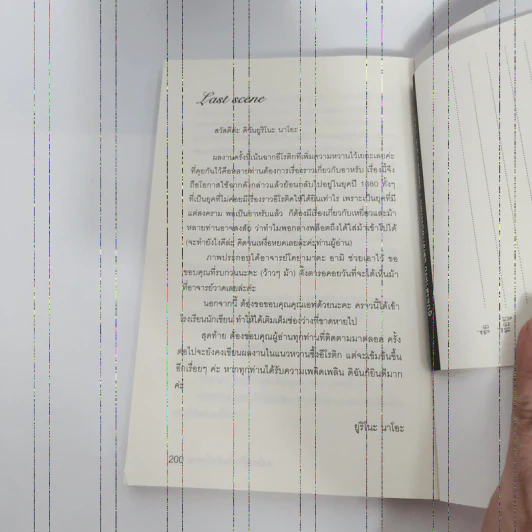 Last scene
สวัสดีค่ะ ดิฉันยูริโนะ นาโอะ
ผลงานครั้งนี้เน้นฉากอีโรติกที่เพิ่มความหวานไว้เยอะเลยค่ะ
ที่คุยกันไว้คือหลายท่านต้องการเรื่องราวเกี่ยวกับอาหรับ เรื่องนี้จึง
ถือโอกาสใช้ฉากดังกล่าวแล้วย้อนกลับไปอยู่ในยุคปี 1980 ทั้งๆ
ที่เป็นยุคที่ไม่ค่อยมีเรื่องราวอีโรติคให้ได้ยินเท่าไร เพราะเป็นยุคที่มี
แต่สงคราม พอเป็นอาหรับแล้ว ก็ต้องมีเรื่องเกี่ยวกับเหยี่ยวและม้า
หลายท่านอาจสงสัย ว่าทำไมพอกลางพล็อตถึงได้ใส่ม้าเข้าไปได้
(จะทำยังไงดีล่ะ คิดจนเหงื่อหยดเลยล่ะค่ะท่านผู้อ่าน)
ภาพประกอบได้อาจารย์โดยามาดะ อามิ ช่วยเอาไว้ ขอ
ขอบคุณที่รบกวนนะคะ (ว้าวๆ ม้า) ตั้งตารอคอยวันที่จะได้เห็นม้า
ที่อาจารย์วาดเลยล่ะค่ะ
นอกจากนี้ ต้องขอขอบคุณคุณเอทด้วยนะคะ คราวนี้ได้เข้า
โรงเรียนนักเขียน ทำให้ได้เติมเต็มช่องว่างที่ขาดหายไป
สุดท้าย ต้องขอบคุณผู้อ่านทุกท่านที่ติดตามมาตลอด ครั้ง
ต่อไปจะยังคงเขียนผลงานในแนวหวานซึ้งอีโรติก แต่จะเข้มข้นขึ้น
อีกเรื่อยๆ ค่ะ หากทุกท่านได้รับความเพลิดเพลิน ดิฉันก็ยินดีมาก
ค่ะ
ยูริโนะ นาโอะ
200